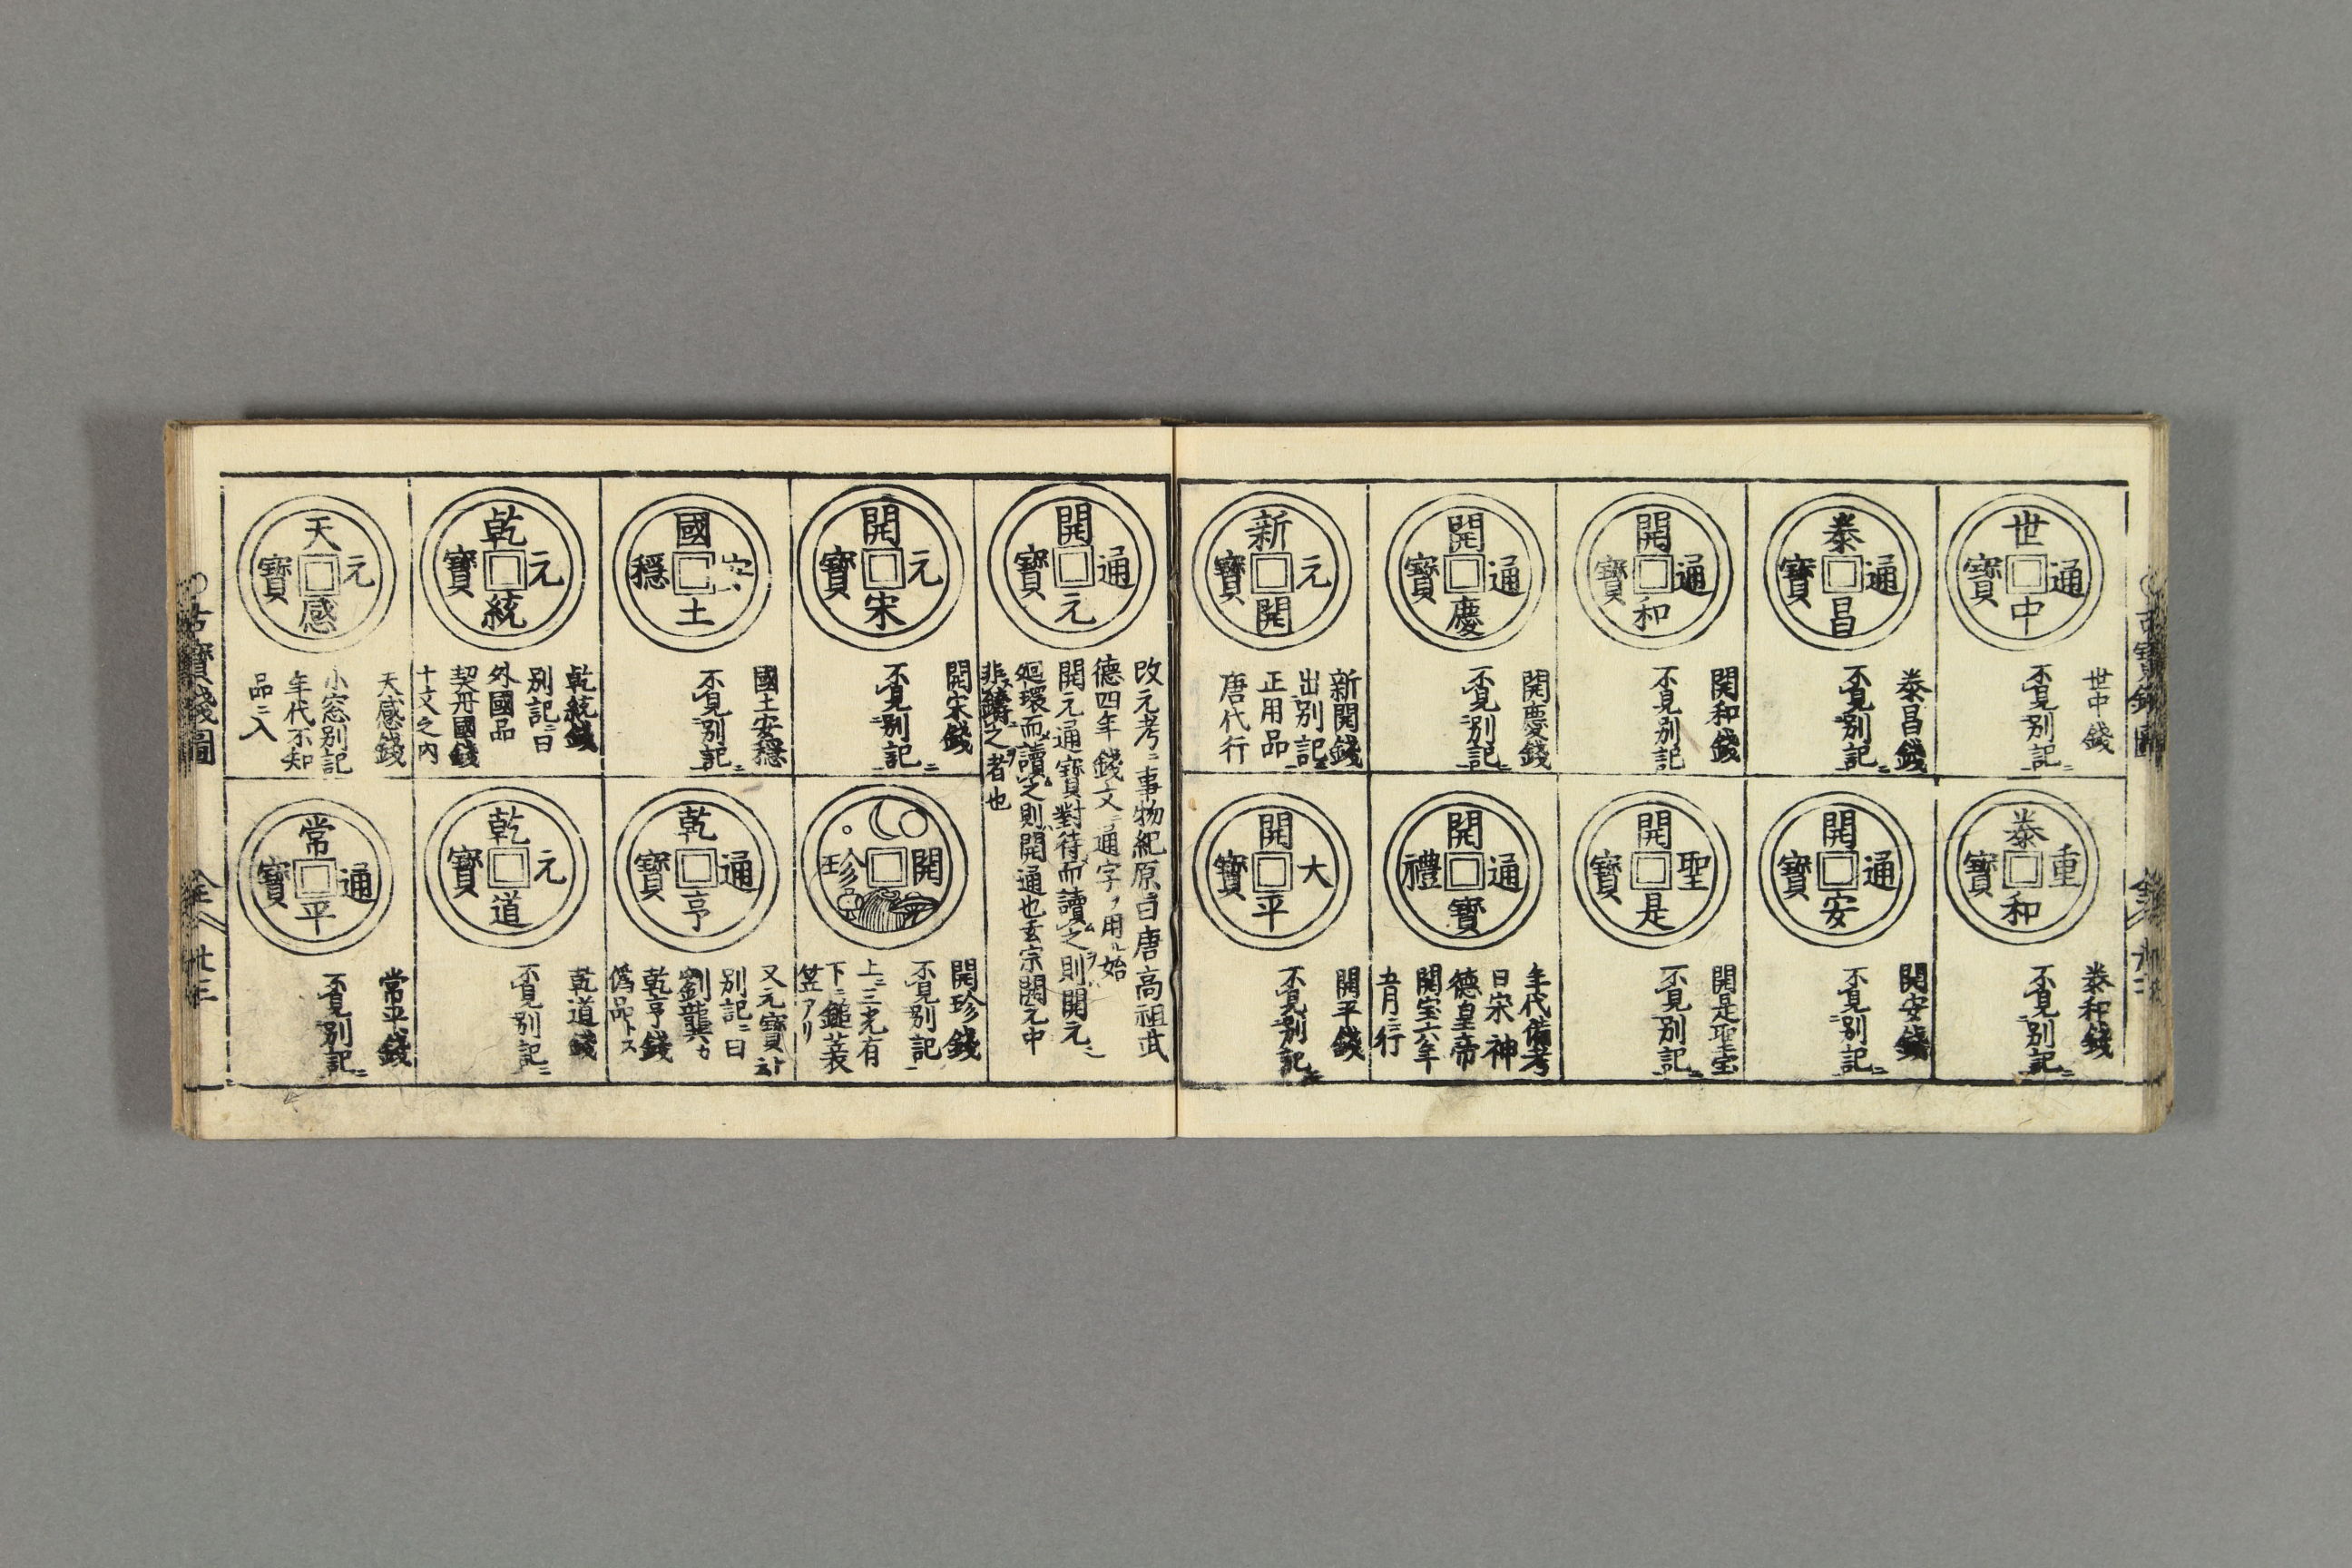 世中通寶
世中錢
不見別記ニ
泰和重寶
泰和錢
不見別記ニ
泰昌通寶
泰昌錢
不見別記ニ
開安通寶
開安錢
不見別記ニ
開和通寶
開和錢
不見別記
開是聖寶
開是聖宝
不見別記ニ
開慶通寶
開慶錢
不見別記ニ
開寶通禮
年代備考
曰宋神
德皇帝
開宝六年
五月行
新開元寶
新開錢
出別記ニ
正用品
唐代行
開平大寶
開平錢
不見別記ニ
開元通寶
改元考ニ事物紀原曰唐高祖武
德四年錢文ニ通字ヲ用ル始
開元通寶對待而讀之則開元
廻環而讀之則開通也玄宗開元中
非鑄之者也
開宋元寶
開宋錢
不見別記ニ
開珍
開珍錢
不見別記
上ニ三光有
下ニ鎚蓑
笠アリ
國土安穩
國土安穩
不見別記ニ
乾亨通寶
又元寶
別記ニ曰
劉龑カ
乾亨錢
偽品トス
乾統元寶
乾統錢
別記ニ曰
外國品
契丹國錢
十文之内
乾道元寶
乾道錢
不見別記ニ
天感元寶
天感錢
小窓別記
年代不知
品ニ入
常平通寶
常平錢
不見別記ニ
古寶錢圖
全
廿三